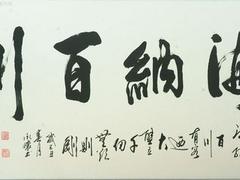 海納百川
百川
有容
迺
大
壁立
千
仞
無欲
則
剛